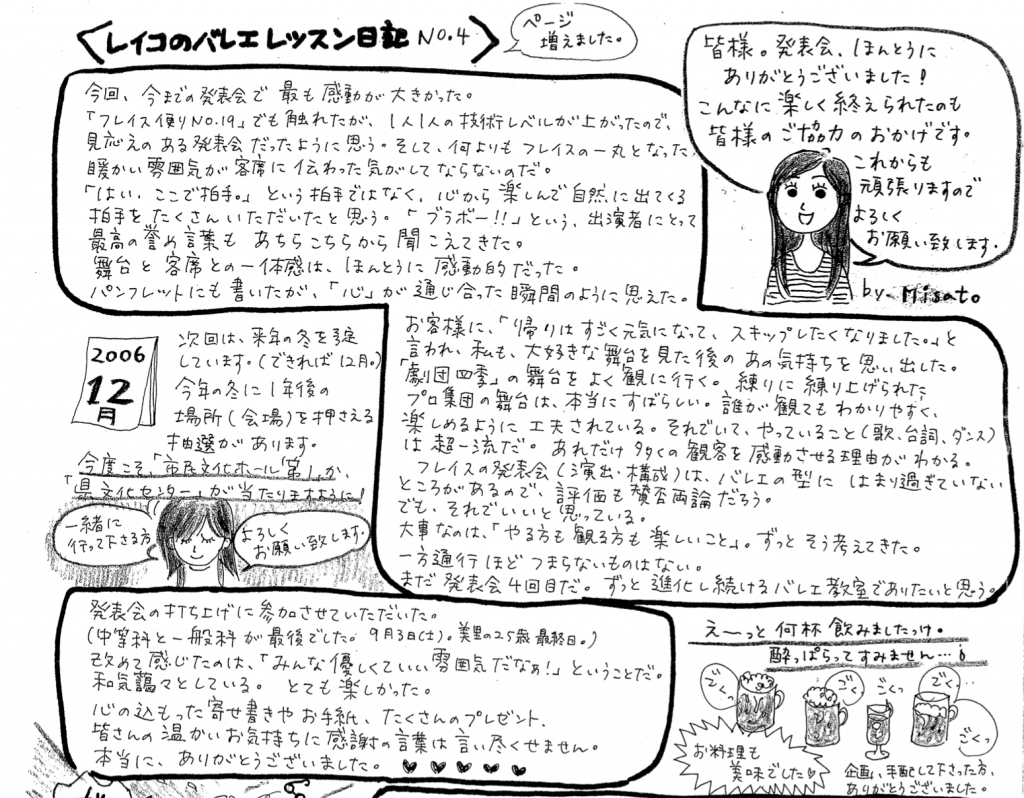 レイコのバレエレッスン日記 NO.4
ページ
増えました。
皆様。発表会、ほんとうに
ありがとうございました!
こんなに楽しく終えられたのも
皆様のご協力のおかげです。
これからも
頑張りますので
よろしく
お願い致します。
by Misato
今回、今までの発表会で最も感動が大きかった。
「フレイス便りNO.19」でも触れたが、1人1人の技術レベルが上がったので、
見応えのある発表会だったように思う。そして、何よりもフレイスの一丸となった、
暖かい雰囲気が客席に伝わった気がしてならないのだ。
「はい、ここで拍手。」という拍手ではなく、心から楽しんで自然に出てくる
拍手をたくさんいただいたと思う。「ブラボー!!」という、出演者にとって
最高の誉め言葉もあちらこちらから聞こえてきた。
舞台と客席との一体感は、ほんとうに感動的だった。
パンフレットにも書いたが、「心」が通じ合った瞬間のように思えた。
2006
12
月
次回は、来年の冬を予定
しています。(できれば12月。)
今年の冬に1年後の
場所(会場)を押さえる
抽選があります。
今度こそ、「市民文化ホール第1」か、
「県文化センター」が当たりますように!
一緒に
行って下さる方
よろしく
お願い致します。
お客様に、「帰りはすごく元気になって、スキップしたくなりました。」と
言われ、私も、大好きな舞台を見た後のあの気持ちを思い出した。
「劇団四季」の舞台をよく観に行く。練りに練り上げられた
プロ集団の舞台は、本当にすばらしい。誰が観てもわかりやすく、
楽しめるように工夫されている。それでいて、やっていること(歌、台詞、ダンス)
は超一流だ。あれだけ多くの観客を感動させる理由がわかる。
フレイスの発表会(演出・構成)は、バレエの型にはまり過ぎていない
ところがあるので、評価も賛否両論だろう。
でも、それでいいと思っている。
大事なのは、「やる方も観る方も楽しいこと」。ずっとそう考えてきた。
一方通行ほどつまらないものはない。
まだ発表会4回目だ。ずっと進化し続けるバレエ教室でありたいと思う。
発表会の打ち上げに参加させていただいた。
(中等科と一般科が最後でした。9月3日(土)。美里の25歳最終日。)
改めて感じたのは、「みんな優しくていい雰囲気だなぁ!」ということだ。
和気藹々としている。とても楽しかった。
心の込もった寄せ書きやお手紙、たくさんのプレゼント、
皆さんの温かいお気持ちに感謝の言葉は言い尽くせません。
本当に、ありがとうございました。♥♥♥♥♥
え〜っと何杯飲みましたっけ。
酔っぱらってすみません…!
ごくっ
ごく
ごくっ
ごく
ごくっ
お料理も
美味でした♡
企画し、手配して下さった方、
ありがとうございました。